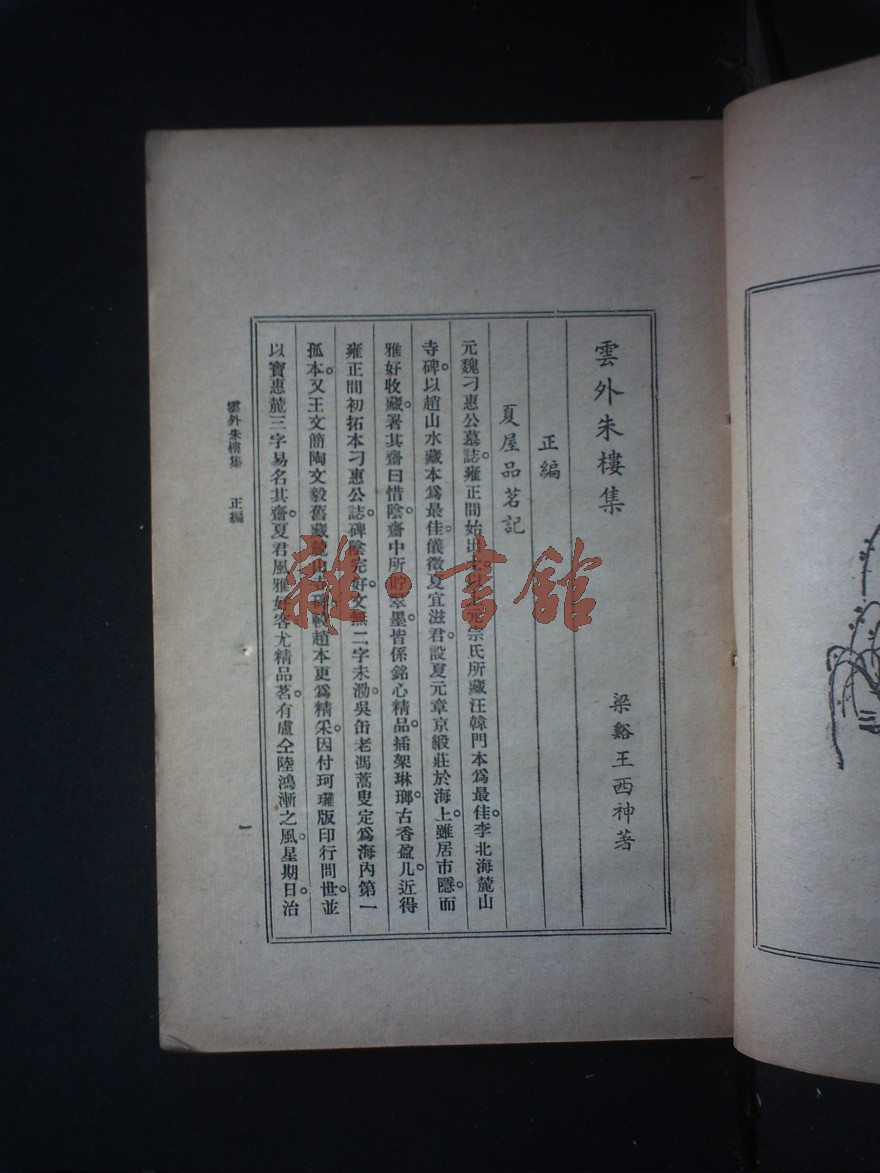 雲外朱樓集
梁谿王西神著
正編
夏屋品茗記
元魏刁惠公墓誌。雍正間始出土。以 宗氏所藏汪韓門本爲最佳。李北海麓山
寺碑。以趙山水藏本爲最佳。儀徵夏宜滋君。設夏元章京緞莊於海上。雖居市隱。而
雅好收藏。署其齋曰惜陰。齋中所貯翠墨。皆係銘心精品。插架琳瑯。古香盈几。近得
雍正間初拓本刁惠公誌。碑陰完好。文無二字未泐。吳缶老馮蒿叟定爲海內第一
孤本。又王文簡陶文毅舊藏麓山寺碑。較趙本更爲精采。因付珂瓓版印行問世。並
以寶惠麓三字易名其齋。夏君風雅好客。尤精品茗。有盧仝陸鴻漸之風。星期日治
雲外朱樓集 正編
一
雜·書館